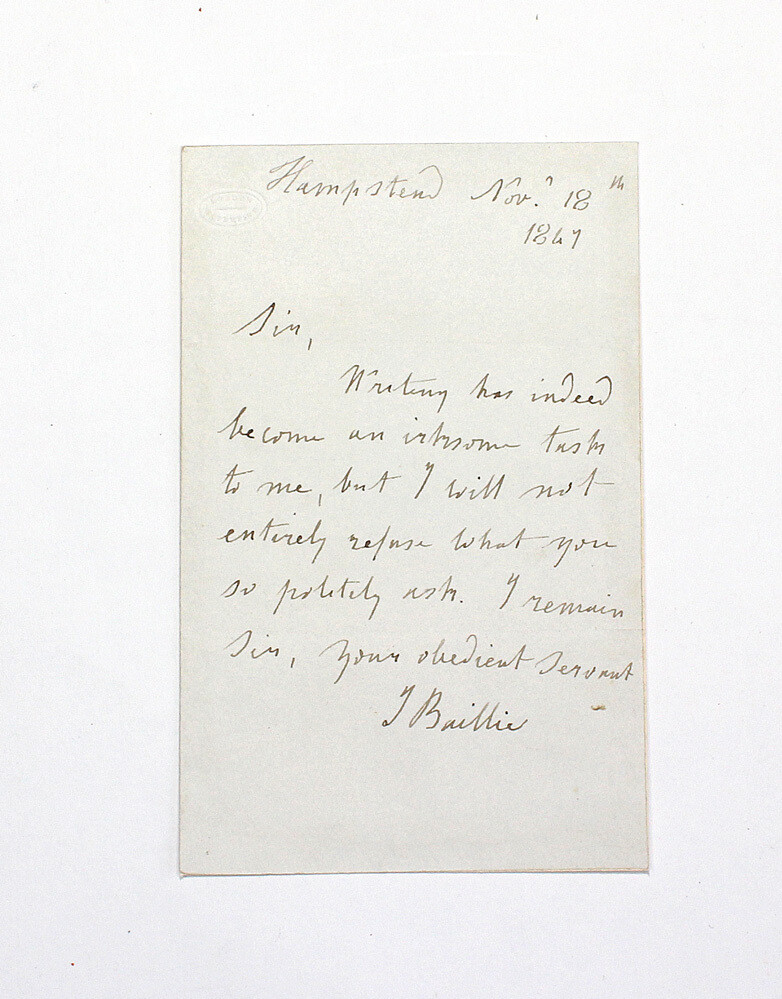 Hampstead Nov.r 18th
1847
Sir,
Writing has indeed
become an irksome task
to me, but I will not
entirely refuse what you
so politely ask. I remain
Sir, your obedient Servant
J Baillie